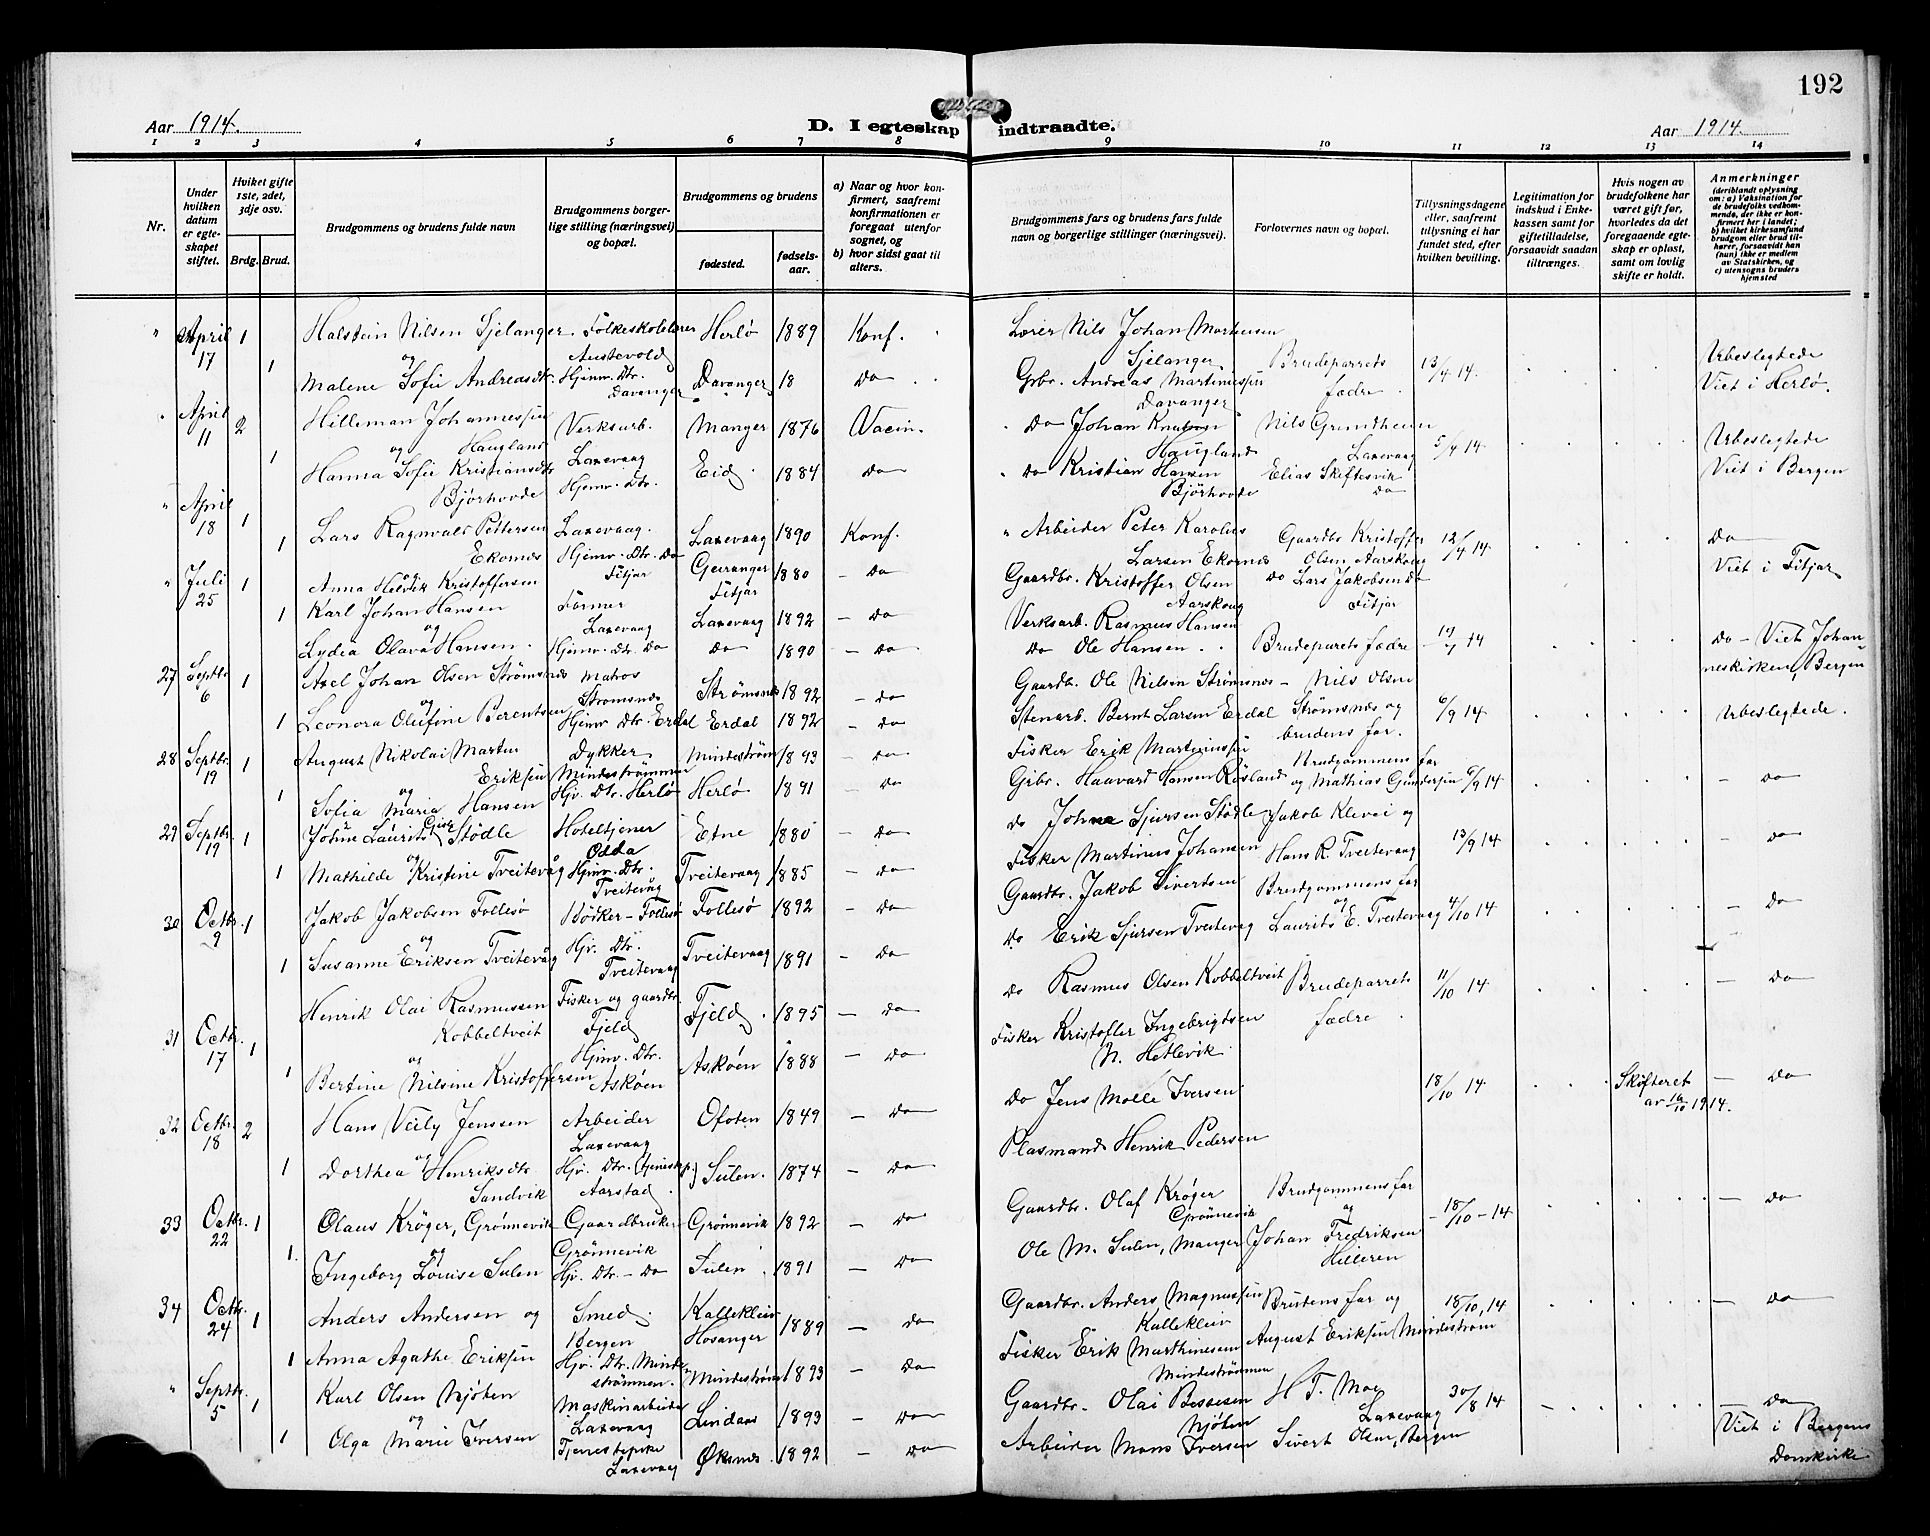 192
Aar 1914.
D. I egteskap indtraadte.
Aar 1914.
1 2 3 4 5 6 7 8 9 10 11 12 13 14
Nr.
Under hvilken datum er egteskapet stiftet.
Hviket gifte 1ste, 2det, 3dje osv.
Brdg. Brud.
Brudgommens og brudens fulde navn
Brudgommens borgerlige stilling (næringsvei) og bopæl.
Brudgommens og brudens
fødested.
fødselsaar.
a) Naar og hvor konfirmert, saafremt konfirmationen er foregaat utenfor sognet, og
b) hvor sidst gaat til alters.
Brudgommens fars og brudens fars fulde navn og borgerlige stillinger (næringsvei).
Forlovernes navn og bopæl.
Tillysningsdagene eller, saafremt tillysning ei har fundet sted, efter hvilken bevilling.
Legitimation for indskud i Enkekassen samt for giftetilladelse, forsaavidt saadan tiltrænges.
Hvis nogen av brudefolkene har været gift før, hvorledes da det foregaaende egteskap er opløst, samt om lovlig skifte er holdt.
Anmerkninger
(deriblandt oplysning om: a) Vaksination for de brudefolks vedkommende, der ikke er konfirmert her i landet; b) hvilket kirkesamfund brudgom eller brud tilhører, forsaavidt han (hun) ikke er medlem av Statskirken, og c) utensogns bruders hjemsted
" April 17 1 Halstein Nilsen Sjelanger Folkeskolelærer Austevold Herlø 1889 Konf. Lærer Nils Johan Martinsen Sjelanger
og
1 Malene Sofie Andreasdtr. Hjemv. Dtr. Davanger Davanger 18 Do Grbr. Andreas Martinussen Davanger Brudeparrets fædre 13/4 14. Ubeslegtede Viet i Herlø.
" April 11 2 Hilleman Johannessen Haugland Verksarb. Laxevaag Manger 1876 Vacin. Do Johan Haugland Nils Grundheim Laxevaag 5/4 14.
og
1 Hanna Sofie Kristiansdtr Bjørhovde Hjemv. Dtr. Eid 1884 do Do Kristian Hansen Bjørhovde Elias Skiftesvik do Ubeslegtede Viet i Bergen
" April 18 1 Lars Ragnvald Pettersen Ekornes Laxevaag. Laxevaag 1890 Konf. Arbeider Peter Karolus Larsen Ekornes Gaardbr. Kristoffer Olsen Aarskoug 12/4 14 Do
1 Anna Helvik Kristoffersen Hjemv. Dtr. Do Fitjar Geiranger Fitjar 1880 Do Gaardbr. Kristoffer Olsen Aarskoug Do Lars Jakobsen Do Fitjar Viet i Fitjar
" Juli 25 1 Karl Johan Hansen Former Laxevaag Laxevaag 1892 Do Verksarb. Rasmus Hansen
og
1 Lydia Olava Hansen. Hjemv. Dtr. Do Do 1890 Do Do Ole Hansen. Brudeparets fædre 14 Do – Viet Johanneskirken, Bergen
27 Septbr. 6 1 Axel Johan Olsen Strømsnes Matros Strømsnes Strømsnes 1892 Do Gaardb. Ole Nilsen Strømsnes – Nils Olsen Strømsnes og brudens far.
og
1 Leonora Olufine Berentsen Hjemv Dtr. Erdal Erdal 1892 Do Stenarb. Bernt Larsen Erdal 6/9 14 Ubeslegtede.
28 Septbr. 19 1 August Nikolai Martin Eriksen Dykker Mindestrømmen Mindestrøm 1893 Do Fisker Erik Martinussen Brudgommens far
og
1 Sofia Maria Hansen Hjv. Dtr. Herlø Herlø 1891 Do Grbr. Haavard Hansen Røsland og Mathias Gundersen 6/9 14 Do
29 Septbr. 19 1 Johan Laurits Stødle Hoteltjener Odda Etne 1880 Do Do Johan Sjursen Stødle Jakob Klevei og
og
1 Mathilde Kristine Treitevåg Hjemv. Dtr. Treitevåg Treitevaag 1885 Do Fisker Martinus Johansen Hans R. Treitevaag 13/9 14 Do
30 Octbr. 9 1 Jakob Jakobsen Follesø Bødker – Follesø Follesø 1892 Do Gaardbr. Jakob Sivertsen Brudgommens far
og
1 Susanne Eriksen Treitevåg Hjv. Dtr. Treitevaag Treitevaag 1891 Do Do Erik Sjursen Treitevåg og Laurits E. Treitevaag 4/10 14 Do
31 Octbr. 17 1 Henrik Olai Rasmussen Kobbeltveit Fisker og gaardbr. Fjeld Fjeld 1895 Do Do Rasmus Olsen Kobbeltveit Brudeparrets fædre 11/10 14 Do
og
1 Bertine Nilsine Kristoffersen Hjemv. Dtr. Askøen Askøen 1888 Do Fisker Kristoffer Ingebrigtsen N. Hetlevik
32 Octbr. 18 2 Hans Veily Jenssen Arbeider Laxevaag Ofoten 1849 Do Do Jens Molle Iversen 18/10 14 Skifteret av 16/10 1914. Do
og
1 Dorthea Henriksdtr Sandvik Hjv. Dtr. Aarstad Sulen. 1874 Do Plasmand Henrik Pedersen
33 Octbr. 22 1 Olaus Krøger, Grønnevik Gaardbruker Grønnevik Grønnevik 1892 Do Gaardbr. Olaf Krøger Grønnevik Brudgommens far 18/10 – 14 Do
og
1. Ingeborg Louise Sulen Hjv. Dtr. – Do Sulen 1891 Do Ole M. Sulen, Manger og Johan Fredriksen Hilleren
34 Octbr. 24 1 Anders Andersen og Smed Bergen Kalleklein Hosanger 1889 Do Gaardbr. Anders Magnussen Kalleklein Brudens far og 18/10, 14 Do
1 Anna Agathe Eriksen Hjv. Dtr. Mindestrømmen. Mindestrøm 1893 Do Fisker Erik Marthinesen Mindestrømmen August Eriksen Mindestrøm
" Septbr. 5 1 Karl Olsen Njøten Maskinarbeider Laxevaag Lindaas 1893 Do Gaardbr. Olai Bessesen Njøten H T. Moe Laxevaag 30/8 14 Do
og
1 Olga Marie Iversen Tjenestepike Laxevaag Øksnes 1892 Do Arbeider Mons Iversen Sivert Olsen, Bergen Viet i Bergens Domkirke